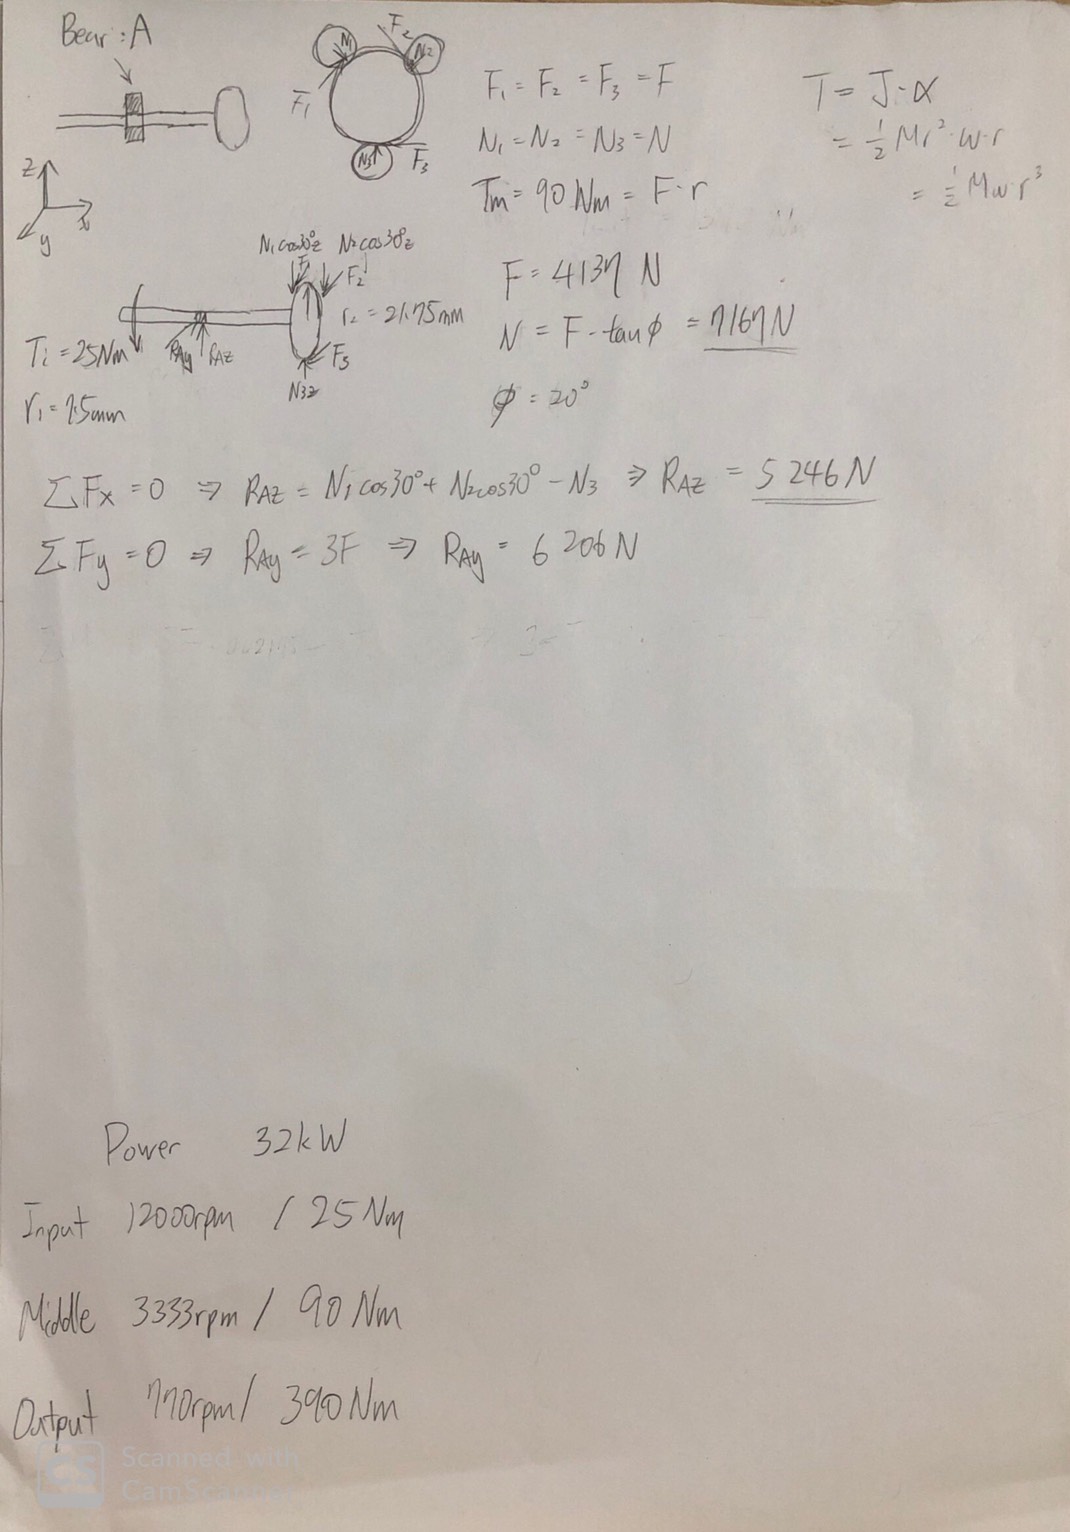 Bear: A
N₁
F₂
N₂
F₁
N₃
F₃
F₁ = F₂ = F₃ = F
N₁ = N₂ = N₃ = N
Tm = 90 Nm = F·r
T = J·α
= 1/2 Mr²·w·r
= 1/2 Mw·r³
z
x
y
N₁cos30°z N₂cos30°z
F₁
F₂
r₂ = 21.75mm
Ti = 25Nm
RAy
RAz
F₃
N3z
F = 4137 N
N = F·tanϕ = 7167N
ϕ = 20°
ΣFx = 0 ⇒ RAZ = N₁cos30° + N₂cos30° - N₃ ⇒ RAZ = 5 246 N
ΣFy = 0 ⇒ RAy = 3F ⇒ RAy = 6 206 N
Power 32kW
Input 12000rpm / 25 Nm
Middle 3333rpm / 90 Nm
Output 770rpm / 390 Nm
CS Scanned with
CamScanner